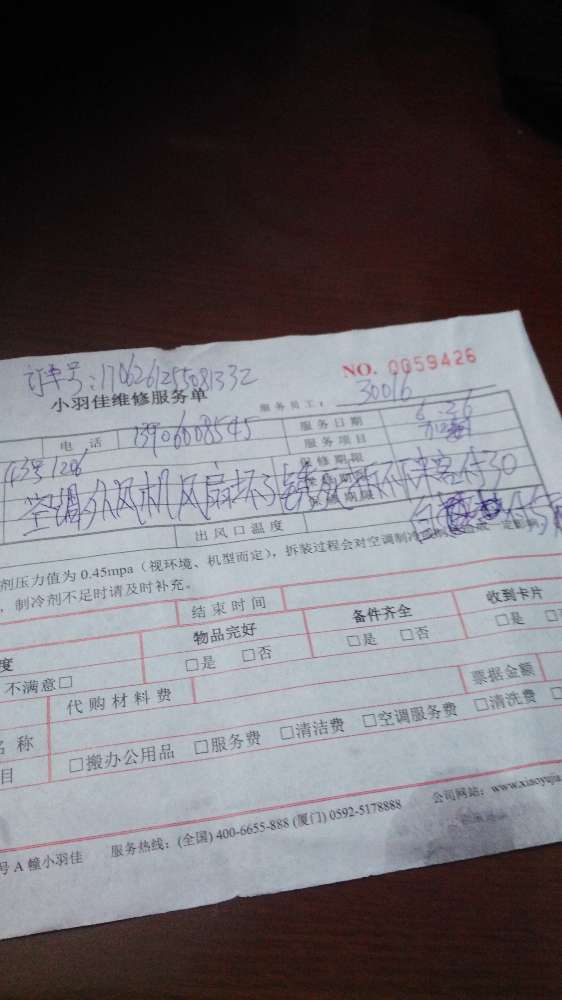 订单号:1706261255081332
NO. 0059426
小羽佳维修服务单
服务员工: 30016
电话 13906008545 服务日期 6-26
43号1206 服务项目
保修期限
空调外风机风扇坏 拆不下来客付30
出风口温度
剂压力值为 0.45mpa(视环境、机型而定),拆装过程会对空调制冷
,制冷剂不足时请及时补充。
结束时间
度 物品完好 备件齐全 收到卡片
不满意□ □是 □否 □是 □否 □是
代购材料费 票据金额
名 称
目 □搬办公用品 □服务费 □清洁费 □空调服务费 □清洗费 □
号 A 幢小羽佳 服务热线:(全国) 400-6655-888 (厦门) 0592-5178888 公司网站:www.xiaoyujia